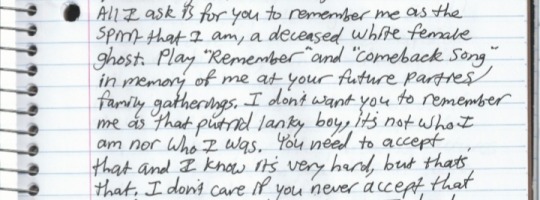 All I ask is for you to remember me as the
spirit that I am, a deceased white female
ghost. Play "Remember" and "comeback song"
in memory of me at your future parties/
family gatherings. I don't want you to remember
me as that putrid lanky boy, it's not who I
am nor who I was. You need to accept
that and I know it's very hard, but thats
that. I don't care if you never accept that